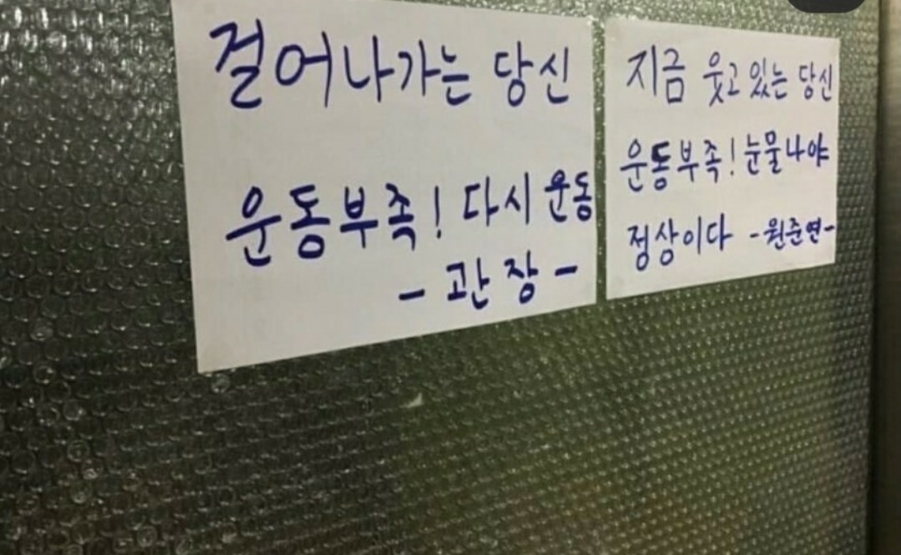 걸어나가는 당신
운동부족! 다시 운동
- 관장 -
지금 웃고 있는 당신
운동부족! 눈물나야
정상이다 - 원준연 -